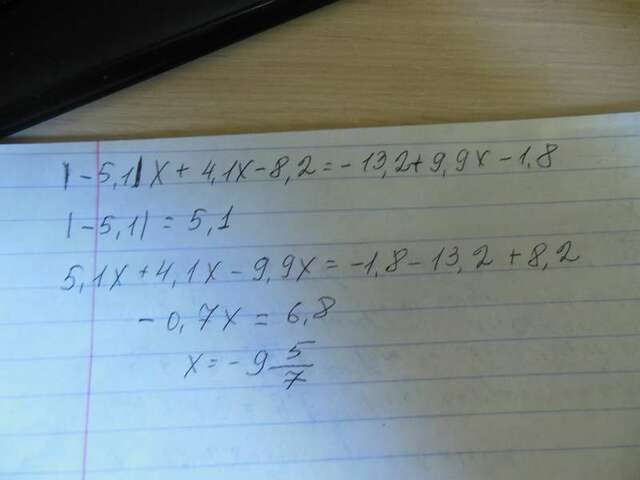 |-5,1|x + 4,1x - 8,2 = -13,2 + 9,9x - 1,8
|-5,1| = 5,1
5,1x + 4,1x - 9,9x = -1,8 - 13,2 + 8,2
-0,7x = 6,8
x = -9 5/7